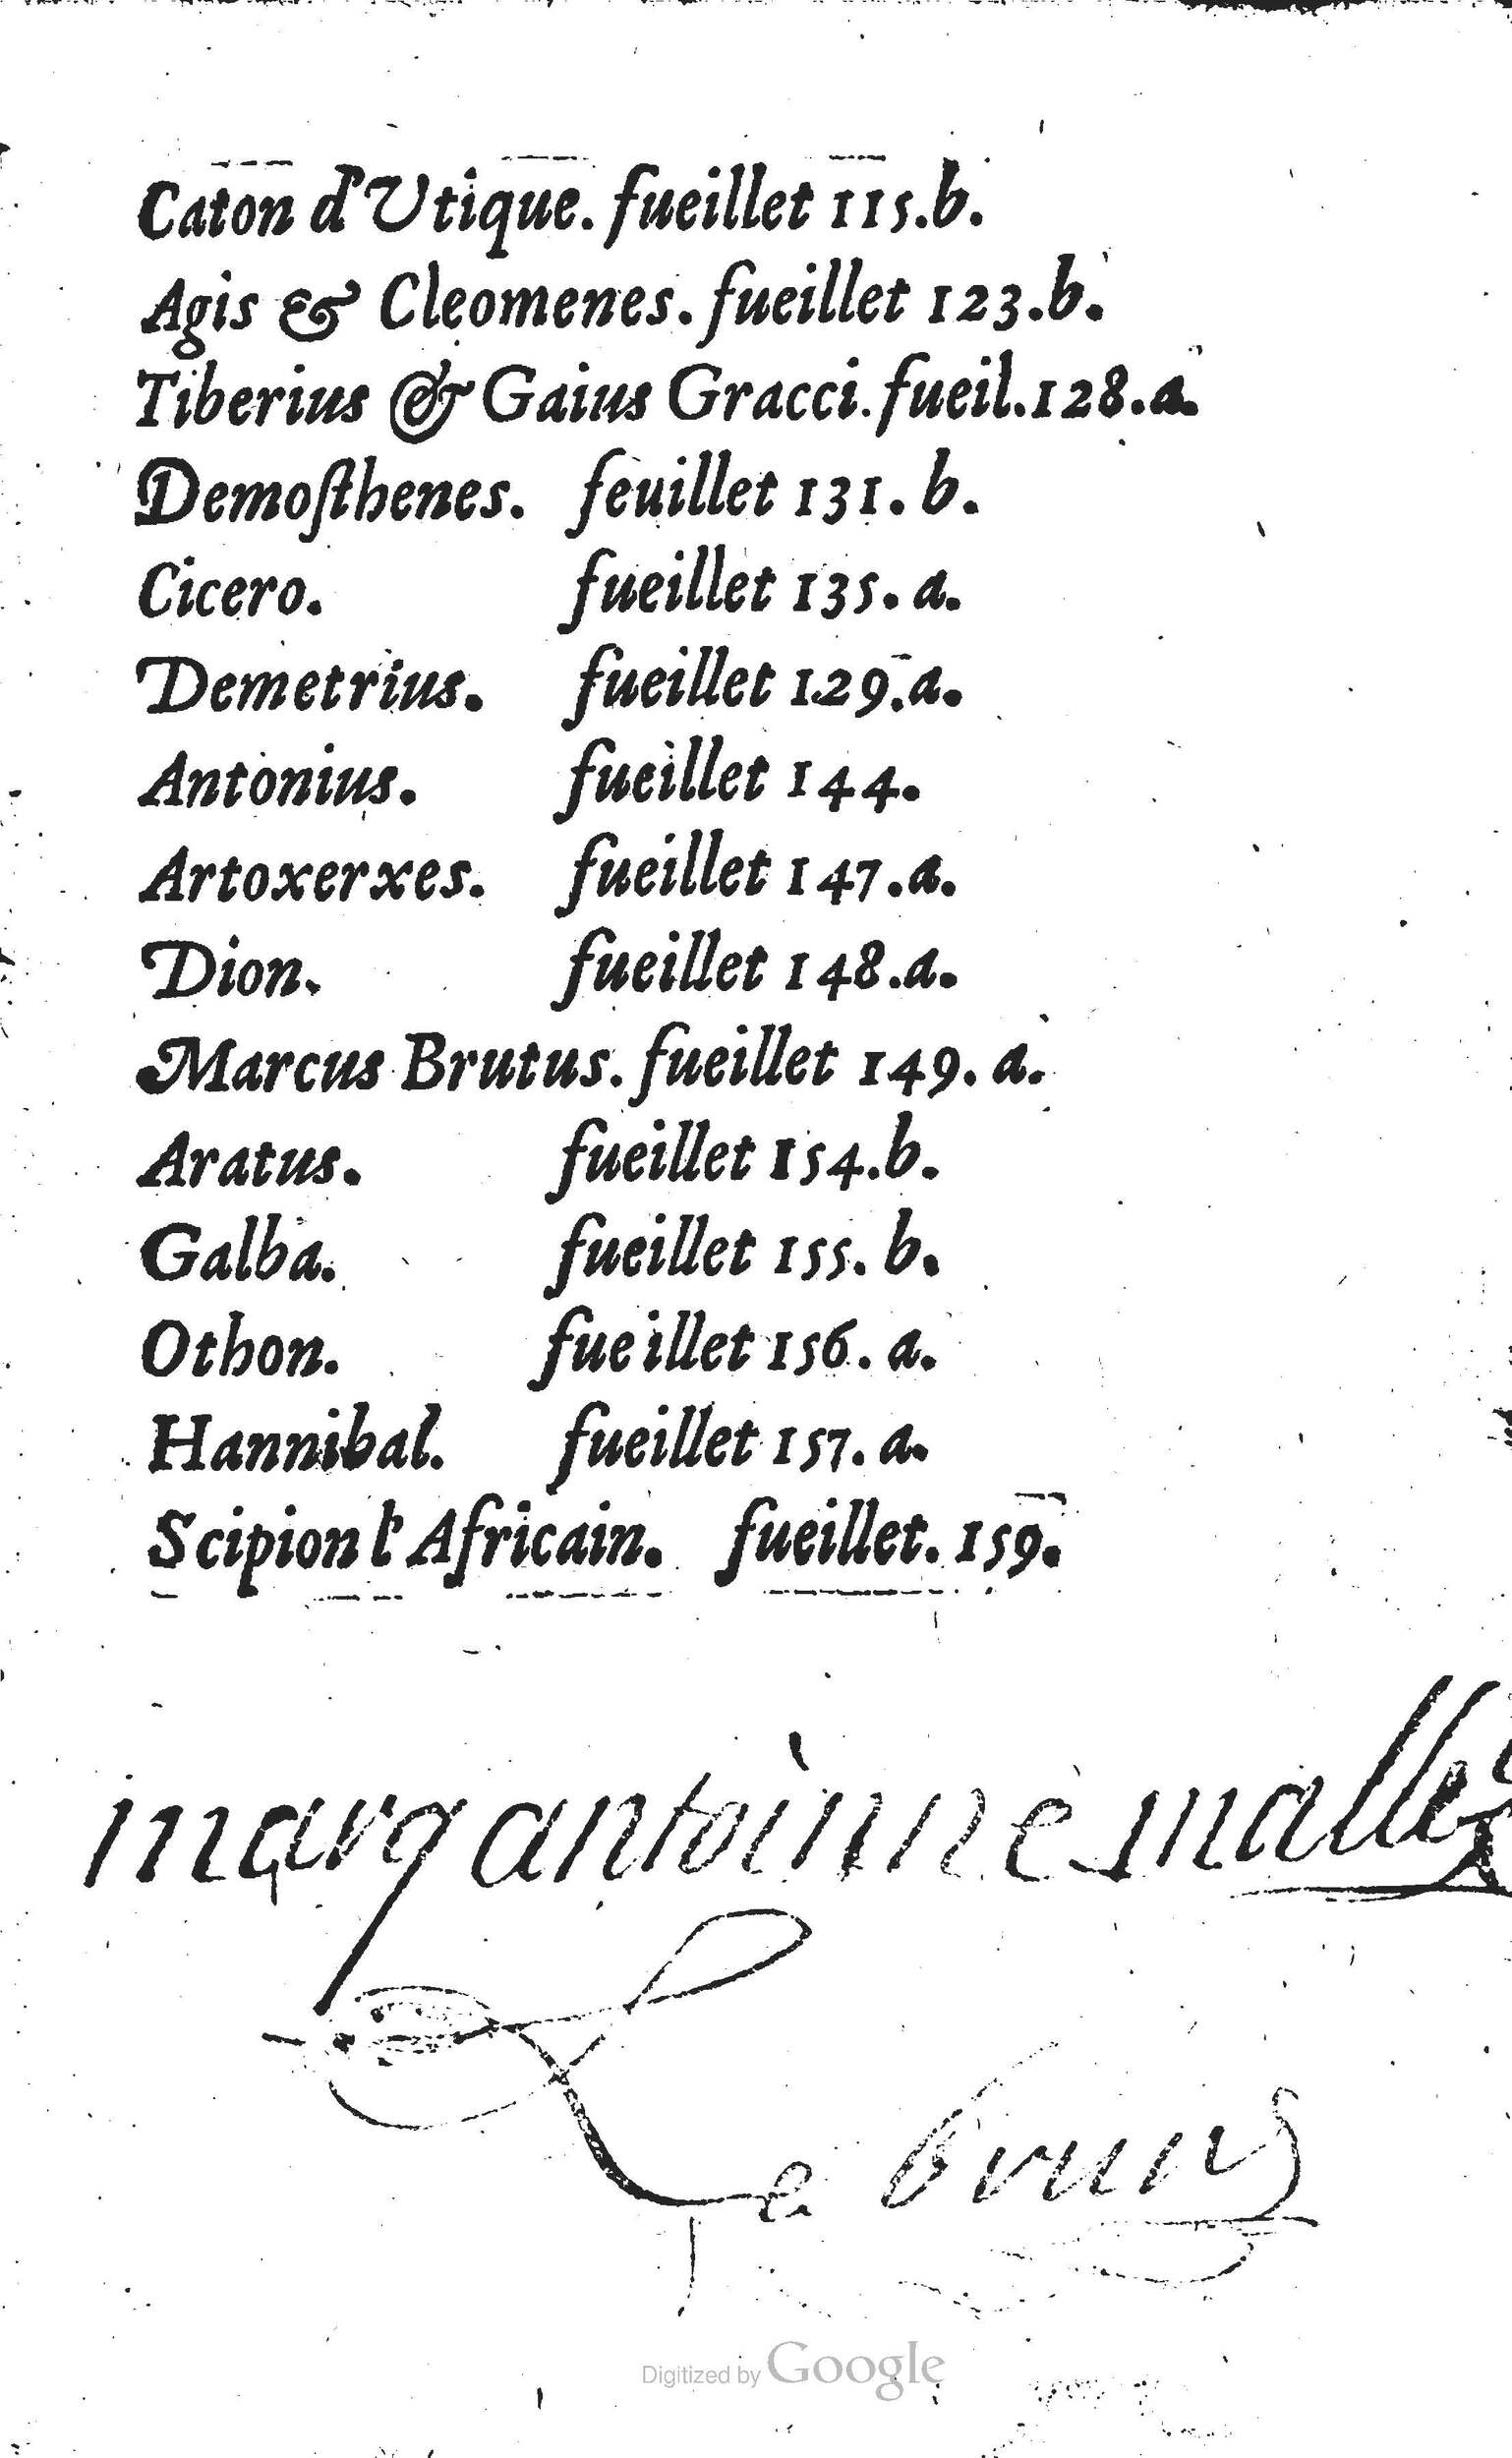 Caton d'Utique. fueillet 115.b.
Agis & Cleomenes. fueillet 123.b.
Tiberius & Gaius Gracci. fueil.128.a.
Demoſthenes. feuillet 131. b.
Cicero. fueillet 135. a.
Demetrius. fueillet 129.a.
Antonius. fueillet 144.
Artoxerxes. fueillet 147.a.
Dion. fueillet 148.a.
Marcus Brutus. fueillet 149. a.
Aratus. fueillet 154.b.
Galba. fueillet 155. b.
Othon. fueillet 156. a.
Hannibal. fueillet 157. a.
Scipion l'Africain. fueillet. 159.
marq antoinne
Le brun
Digitized by Google